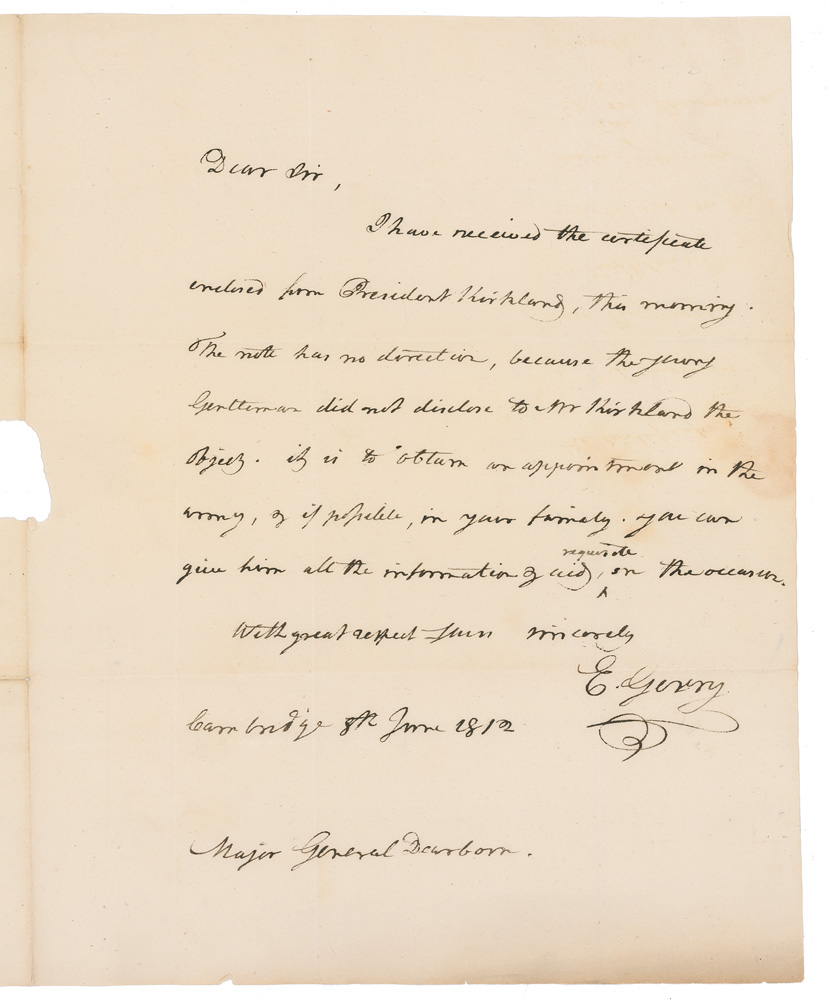 Dear Sir,
I have received the certificate
enclosed from President Kirkland, this morning.
The note has no direction, because the young
Gentleman did not disclose to Mr Kirkland the
object. it is to obtain an appointment in the
army, & if possible, in your family. you can
give him all the information & aid, requisite on the occasion.
With great respect yours sincerely
E. Gerry
Cambridge 8th June 1812
Major General Dearborn.